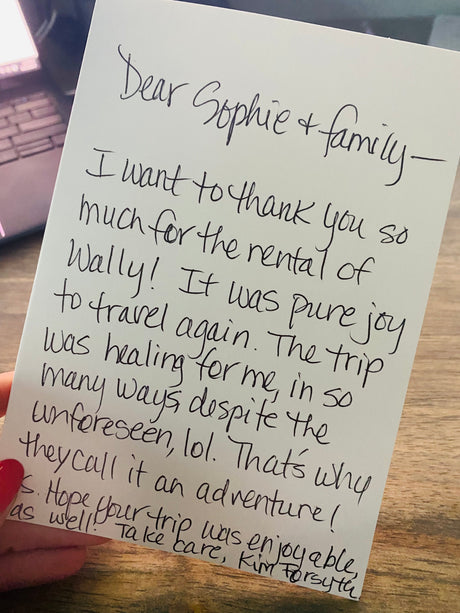 Dear Sophie + family—
I want to thank you so
much for the rental of
Wally! It was pure joy
to travel again. The trip
was healing for me, in so
many ways, despite the
unforeseen, lol. That's why
they call it an adventure!
s. Hope your trip was enjoyable,
as well! Take care, Kim Forsyth